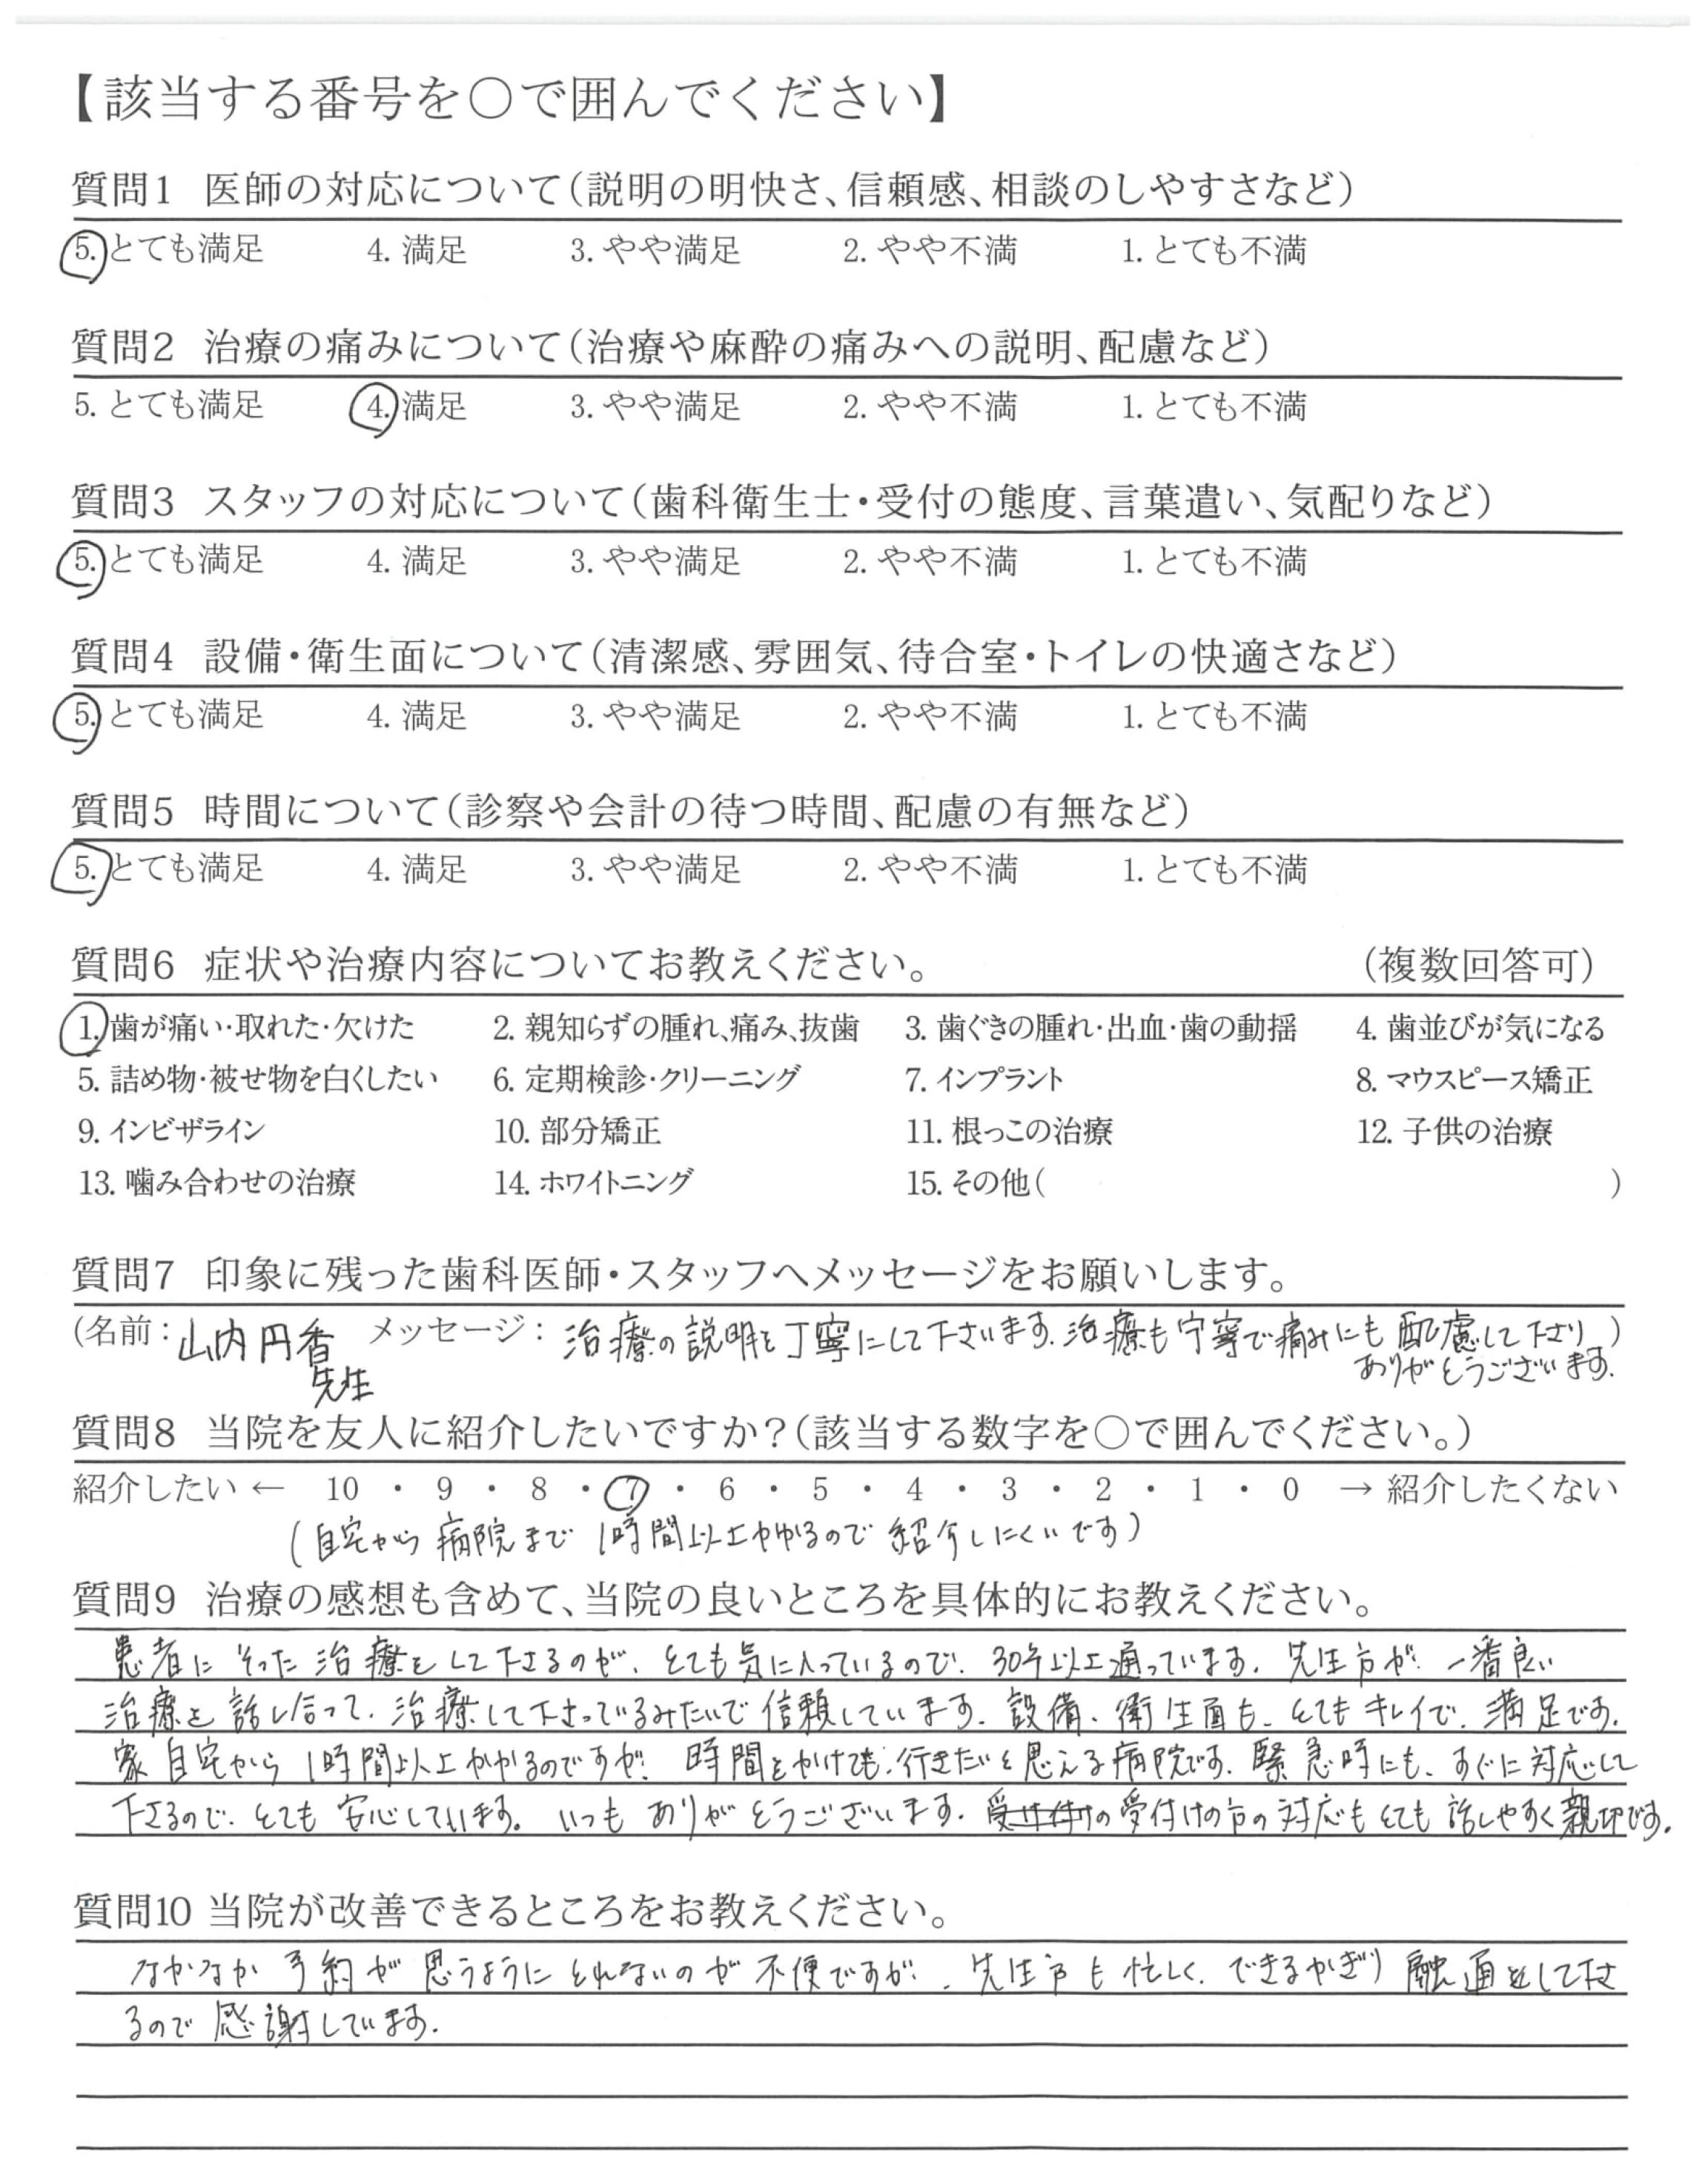 【該当する番号を○で囲んでください】
質問1 医師の対応について(説明の明快さ、信頼感、相談のしやすさなど)
5. とても満足 4. 満足 3. やや満足 2. やや不満 1. とても不満
質問2 治療の痛みについて(治療や麻酔の痛みへの説明、配慮など)
5. とても満足 4. 満足 3. やや満足 2. やや不満 1. とても不満
質問3 スタッフの対応について(歯科衛生士・受付の態度、言葉遣い、気配りなど)
5. とても満足 4. 満足 3. やや満足 2. やや不満 1. とても不満
質問4 設備・衛生面について(清潔感、雰囲気、待合室・トイレの快適さなど)
5. とても満足 4. 満足 3. やや満足 2. やや不満 1. とても不満
質問5 時間について(診察や会計の待つ時間、配慮の有無など)
5. とても満足 4. 満足 3. やや満足 2. やや不満 1. とても不満
質問6 症状や治療内容についてお教えください。 (複数回答可)
1. 歯が痛い・取れた・欠けた 2. 親知らずの腫れ、痛み、抜歯 3. 歯ぐきの腫れ・出血・歯の動揺 4. 歯並びが気になる
5. 詰め物・被せ物を白くしたい 6. 定期検診・クリーニング 7. インプラント 8. マウスピース矯正
9. インビザライン 10. 部分矯正 11. 根っこの治療 12. 子供の治療
13. 噛み合わせの治療 14. ホワイトニング 15. その他( )
質問7 印象に残った歯科医師・スタッフへメッセージをお願いします。
(名前: 山内円香 メッセージ: 治療の説明を丁寧にして下さいます。治療も丁寧で痛みにも配慮して下さり)
先生 ありがとうございます。
質問8 当院を友人に紹介したいですか?(該当する数字を○で囲んでください。)
紹介したい ← 10 ・ 9 ・ 8 ・ 7 ・ 6 ・ 5 ・ 4 ・ 3 ・ 2 ・ 1 ・ 0 → 紹介したくない
(自宅から病院まで1時間以上かかるので紹介しにくいです)
質問9 治療の感想も含めて、当院の良いところを具体的にお教えください。
患者にそった治療をして下さるのが、とても気に入っているので、30年以上通っています。先生方が一番良い
治療を話し合って、治療して下さっているみたいで信頼しています。設備、衛生面も、とてもキレイで、満足です。
家自宅から1時間以上かかるのですが、時間をかけても、行きたいと思える病院です。緊急時にも、すぐに対応して
下さるので、とても安心しています。いつもありがとうございます。受け付の受付けの方の対応もとても話しやすく親切です。
質問10 当院が改善できるところをお教えください。
なかなか予約が思うようにとれないのが不便ですが、先生方も忙しく、できるかぎり融通をして下さ
るので感謝しています。